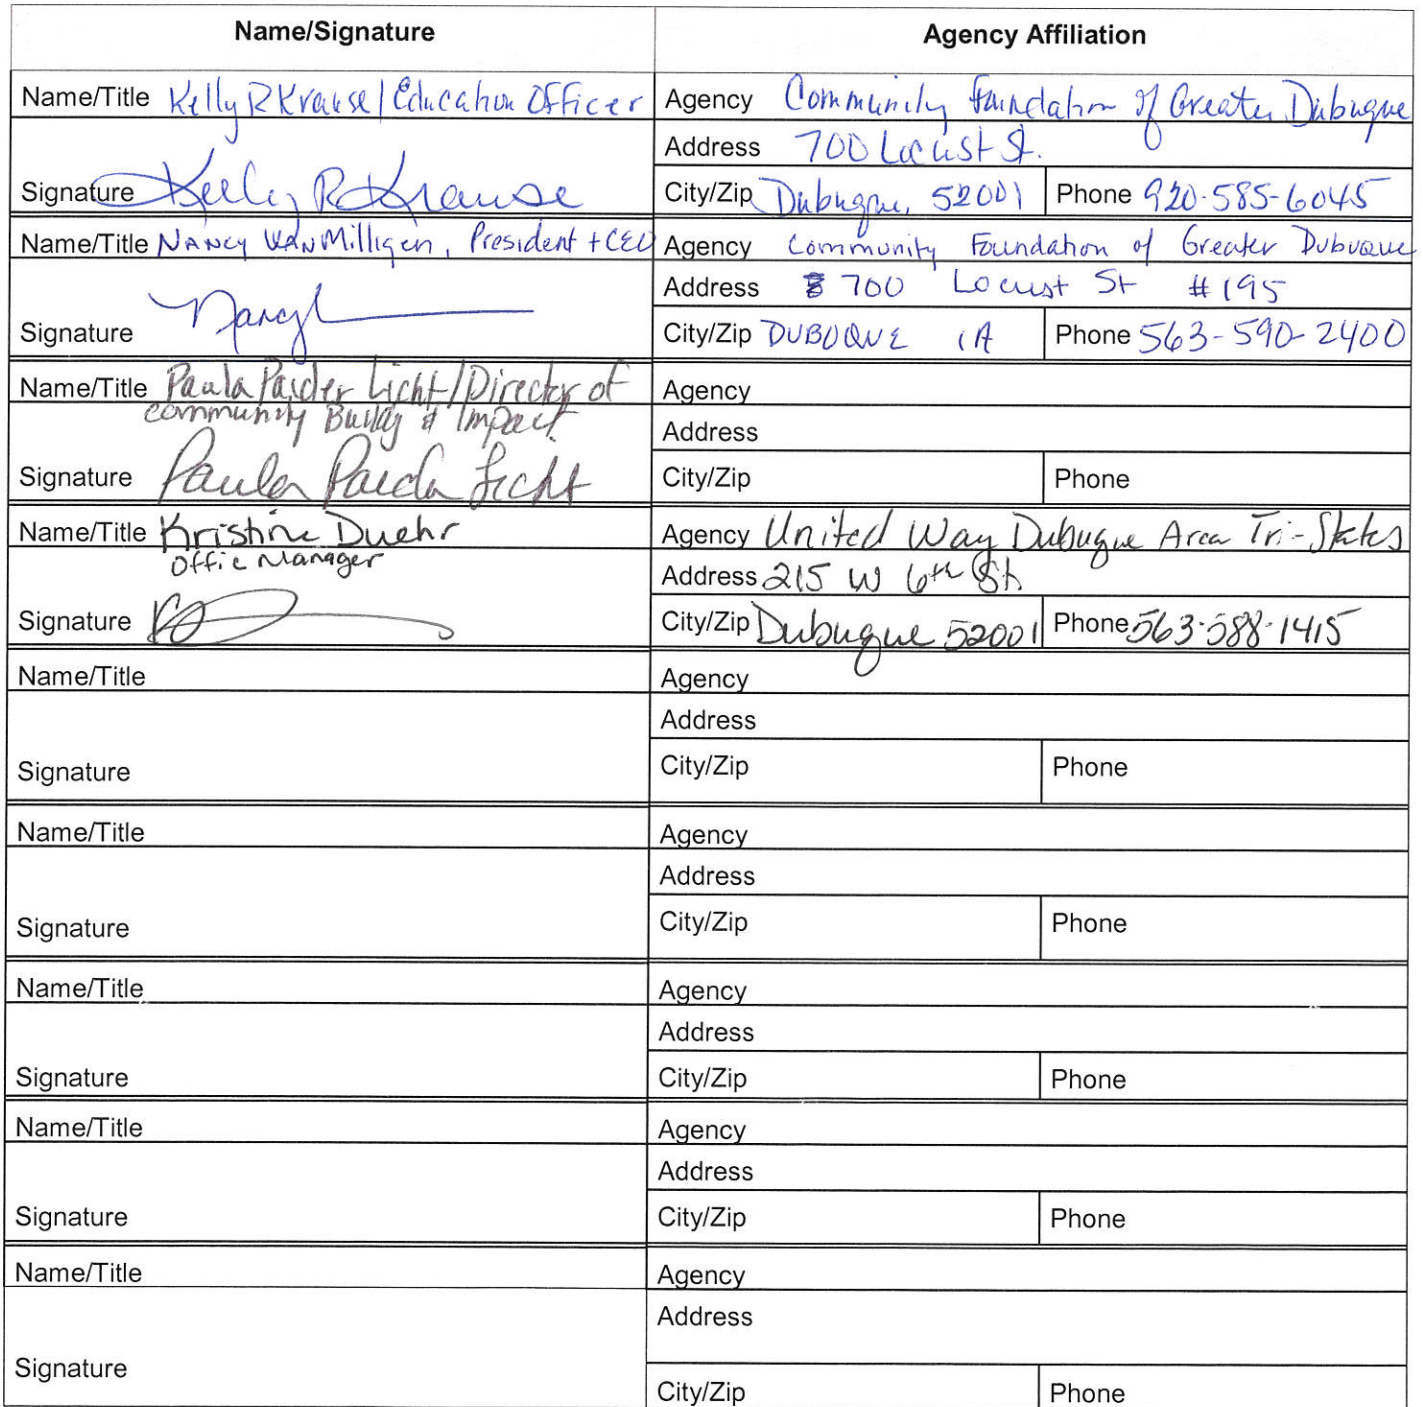 Name/Signature
Agency Affiliation
Name/Title Kelly R Krause / Education Officer
Agency Community Foundation of Greater Dubuque
Address 700 Locust St.
Signature Kelly R Krause
City/Zip Dubuque, 52001
Phone 920-585-6045
Name/Title NANCY VANMilligen, President + CEO
Agency Community Foundation of Greater Dubuque
Address 700 Locust St #195
Signature Nancy
City/Zip DUBUQUE IA
Phone 563-590-2400
Name/Title Paula Paider Licht / Director of
community Buildg & Impact
Agency
Address
Signature Paula Paider Licht
City/Zip
Phone
Name/Title Kristine Duehr
Office Manager
Agency United Way Dubuque Area Tri-States
Address 215 W 6th St.
Signature
City/Zip Dubuque 52001
Phone 563-588-1415
Name/Title
Agency
Address
Signature
City/Zip
Phone
Name/Title
Agency
Address
Signature
City/Zip
Phone
Name/Title
Agency
Address
Signature
City/Zip
Phone
Name/Title
Agency
Address
Signature
City/Zip
Phone
Name/Title
Agency
Address
Signature
City/Zip
Phone